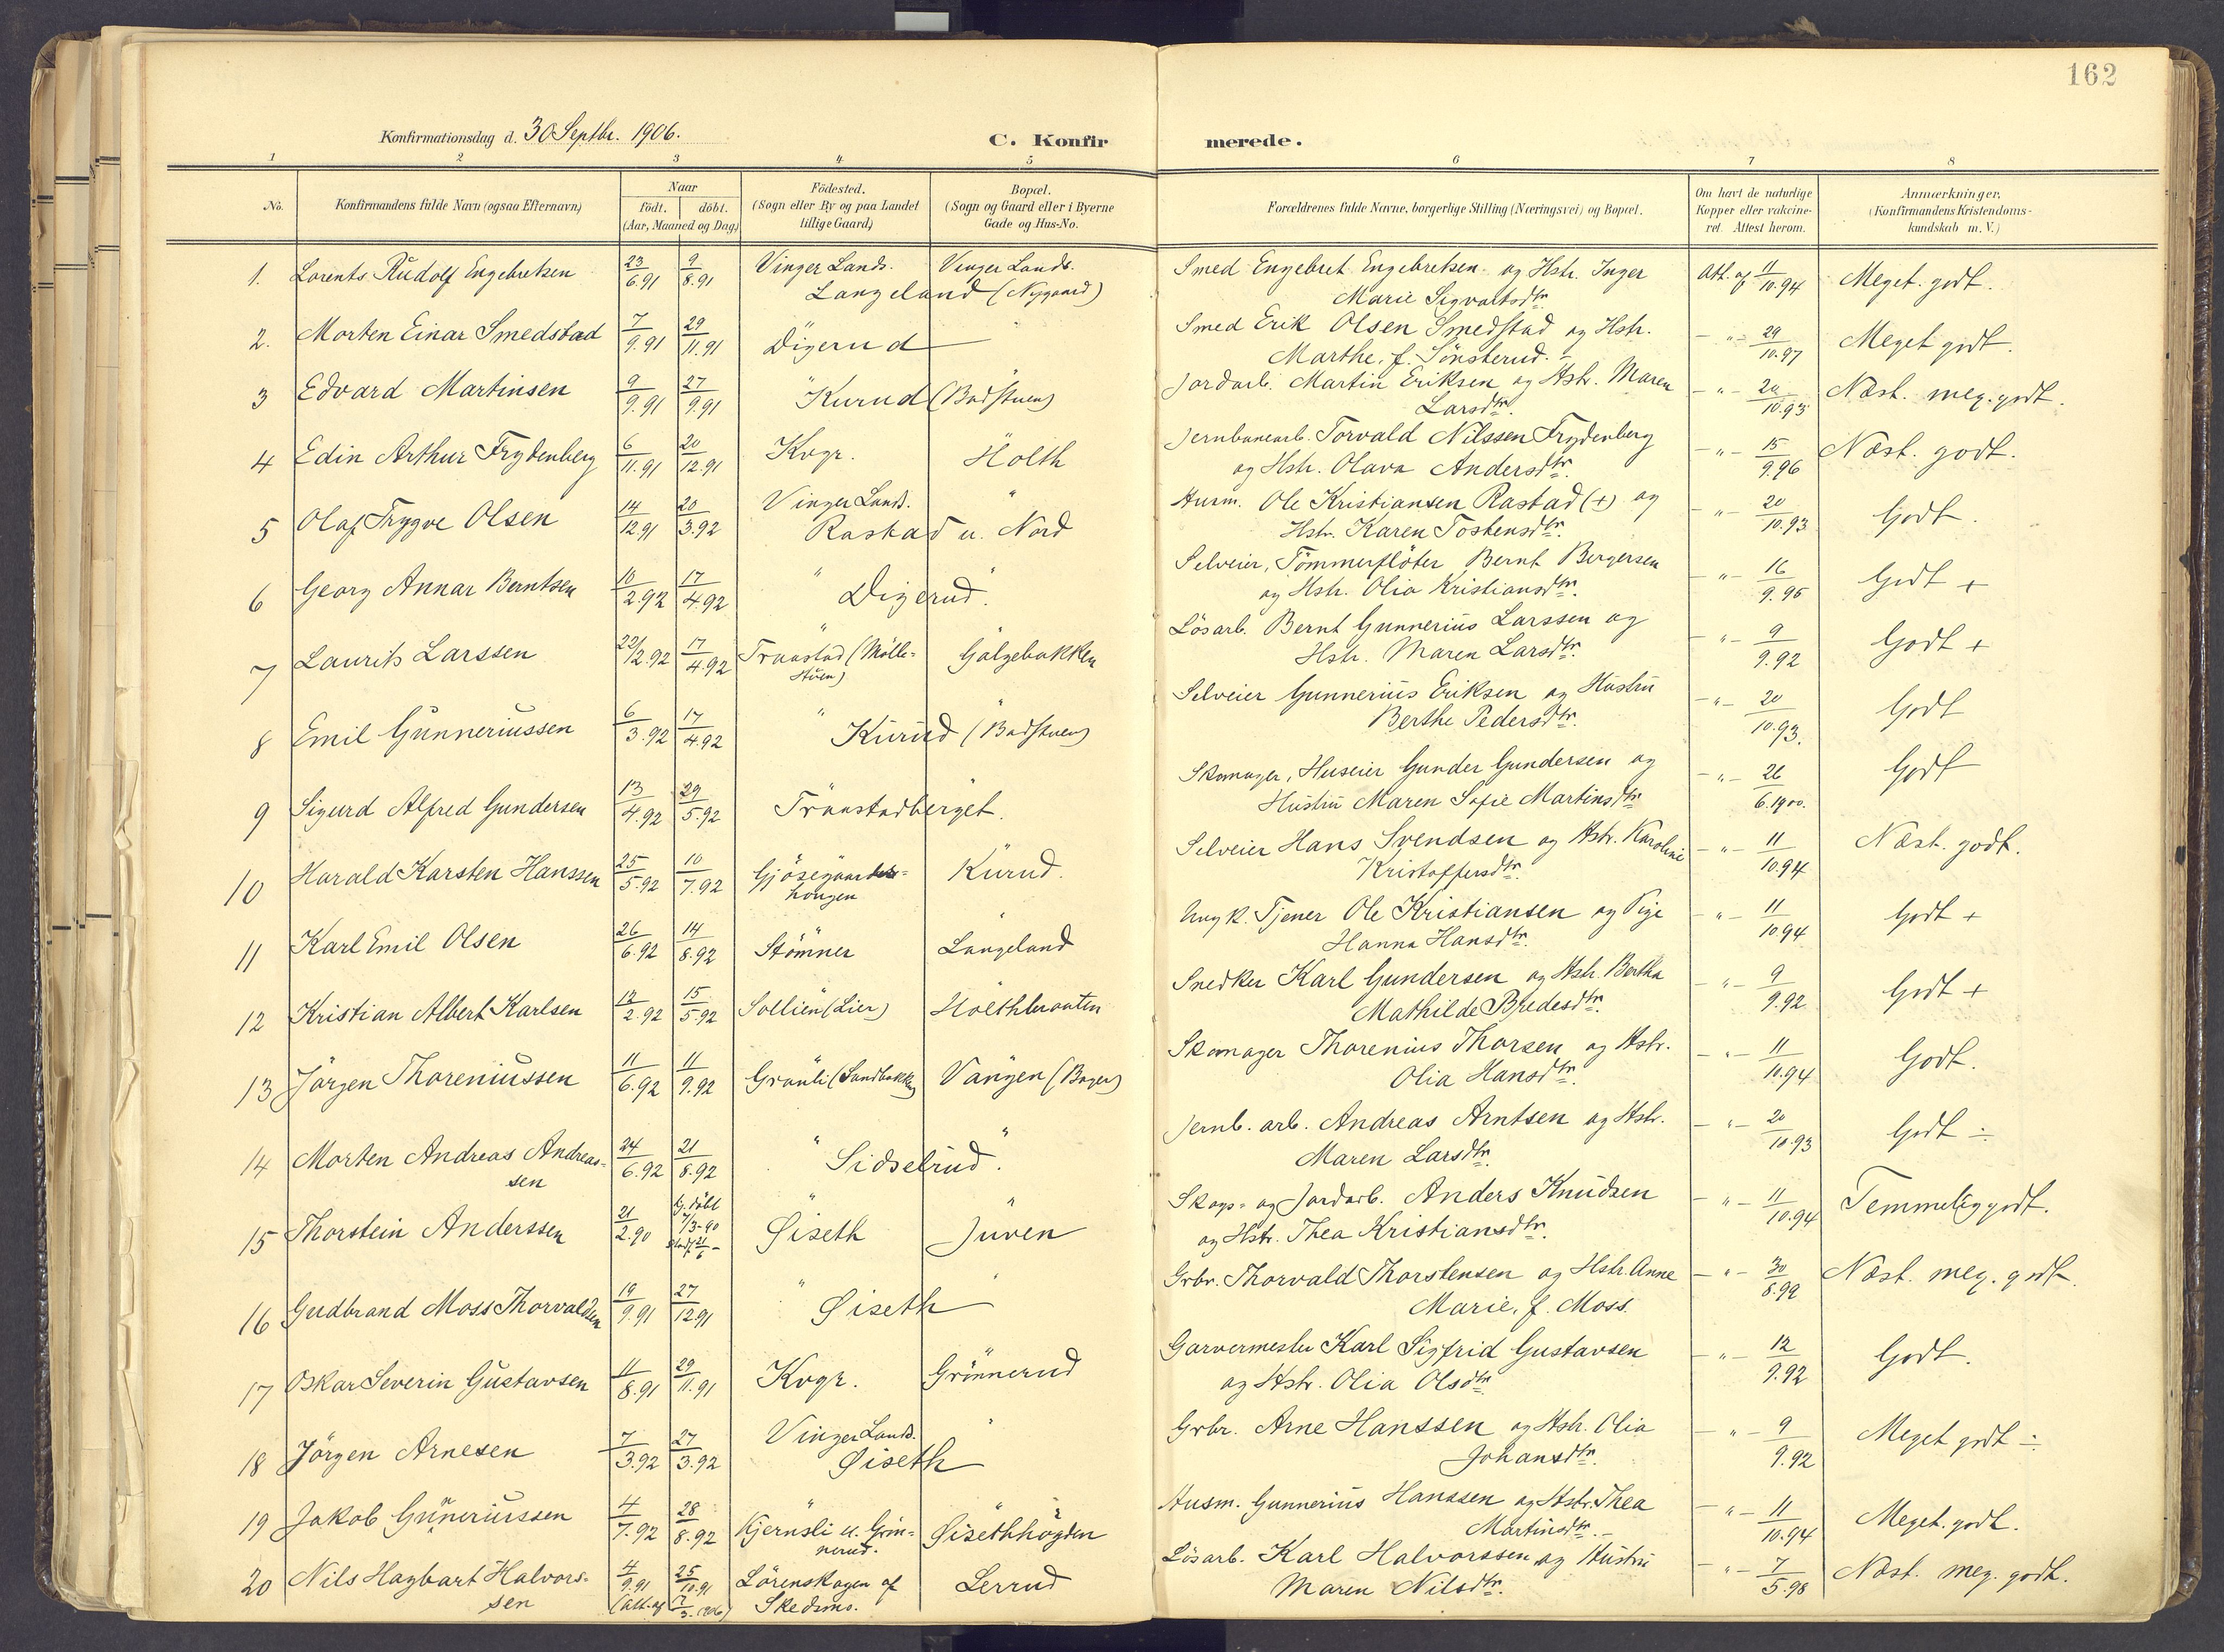 162
Konfirmationsdag d. 30 Septbr. 1906.
C. Konfirmerede.
1 2 3 4 5 6 7 8
No.
Konfirmandens fulde Navn (ogsaa Efternavn)
Naar
födt. döbt.
(Aar, Maaned og Dag)
Födested.
(Sogn eller By og paa Landet
tillige Gaard)
Bopæl.
(Sogn og Gaard eller i Byerne
Gade og Hus-No.
Forældrenes fulde Navne, borgerlige Stilling (Næringsvei) og Bopæl.
Om havt de naturlige
Kopper eller vakcine-
ret. Attest herom.
Anmærkninger,
(Konfirmandens Kristendoms-
kundskab m.V.)
1. Lorents Rudolf Engebretsen 23/6.91 9/8.91 Vinger Lands. Vinger Lands. Smed Engebret Engebretsen og Hstr. Inger Att. af 11/10.94 Meget godt.
Langeland (Nygaard) Marie Sigvartsdtr.
2. Morten Einar Smedstad 7/9.91 29/11.91 Digerud Smed Erik Olsen Smedstad og Hstr. -"- 29/10.97 Meget godt.
Marthe, f. Sönsterud.
3 Edvard Martinsen 9/9.91 27/9.91 Kurud (Badstuen) Jordarb. Martin Eriksen og Hstr. Maren -"- 20/10.93 Næst. meg. godt.
Larsdtr.
4 Edin Arthur Frydenberg 6/11.91 20/12.91 Kvgr. Holth Jernbanearb. Torvald Nilssen Frydenberg -"- 15/9.96 Næst. godt.
og Hstr. Olava Andersdtr.
5 Olaf Trygve Olsen 14/12.91 20/3.92 Vinger Lands. " Husm. Ole Kristiansen Rastad (+) og -"- 20/10.93 Godt.
Rastad u. Nord Hstr. Karen Tostensdtr.
6 Georg Annar Berntsen 10/2.92 17/4.92 " Digerud. " Selveier, Tömmerflöter Bernt Bergersen -"- 16/9.95 Godt +
og Hstr. Olia Kristiansdtr.
7 Laurits Larssen 22/12.92 17/4.92 Traastad (Mölle- Galgebakken Lösarb. Bernt Gunnerius Larssen og -"- 9/9.92 Godt +
stuen) Hstr. Maren Larsdtr.
8 Emil Gunneriussen 6/3.92 17/4.92 " Kurud (Badstuen) Selveier Gunnerius Eriksen og Hustru -"- 20/10.93. Godt
Berthe Pedersdtr.
9 Sigurd Alfred Gundersen 13/4.92 29/5.92 Traastadberget. Skomager, Huseier Gunder Gundersen og -"- 26/6.1900. Godt
Hustru Maren Sofie Martinsdtr.
10 Harald Karsten Hanssen 25/5.92 10/7.92 Kurud. Selveier Hans Svendsen og Hstr. Karoline -"- 11/10.94 Næst. godt.
hougen Kristoffersdtr.
11 Karl Emil Olsen 26/6.92 14/8.92 Stömner Langeland Ungk. Tjener Ole Kristiansen og Pige -"- 11/10 94 Godt +
Hanna Hansdtr.
12 Kristian Albert Karlsen 12/2.92 15/5.92 Sollien (Lier) Holthbraaten Snedker Karl Gundersen og Hstr. Bertha -"- 9/9.92 Godt +
Mathilde Bredesdtr.
13 Jörgen Thoreniussen 11/6.92 11/9.92 Granli (Sandbakken) Vangen Skomager Thorenius Thorsen og Hstr. -"- 11/10.94 Godt.
Olia Hansdtr.
14 Morten Andreas Andreas- 24/6.92 21/8.92 " Sidselrud. " Jernb. arb. Andreas Arntsen og Hstr. -"- 20/10.93 Godt ÷
sen Maren Larsdtr.
15 Thorstein Anderssen 21/2.90 hj. döbt 7/3-90 " Øiseth " Juven Skogs- og Jordarb. Anders Knudsen -"- 11/10.94 Temmelig godt.
og Hstr. Thea Kristiansdtr.
16 Gudbrand Moss Thorvaldsen 19/9.91 27/12.91 " Øiseth " Grbr. Thorvald Thorstensen og Hstr. Anne -"- 30/8.99 Næst. meg. godt.
Marie, f. Moss.
17 Oskar Severin Gustavsen 11/8.91 29/11.91 Kvgr. Grönnerud Garvermester Karl Sigfrid Gustavsen -"- 12/9.92 Godt.
og Hstr. Olia Olsdtr.
18 Jörgen Arnesen 7/3.92 27/3.92 Vinger Lands. " Grbr. Arne Hanssen og Hstr. Olia -"- 9/9.92 Meget godt ÷
Øiseth Johansdtr.
19 Jakob Guneriussen 4/7.92 28/8.92 Kjernsli u. Grön- Øisethhögden Husm. Gunnerius Hanssen og Hstr. Thea -"- 11/10.94 Meget godt.
nerud. Martinsdtr.
20 Nils Hagbart Halvors- 4/9.91 25/10.91 Lörenskogen af Lerrud Lösarb. Karl Halvorssen og Hustru -"- 7/5.98 Næst. meg. godt.
sen (Att. af 7/3-1906) Skedsmo. Maren Nilsdtr.